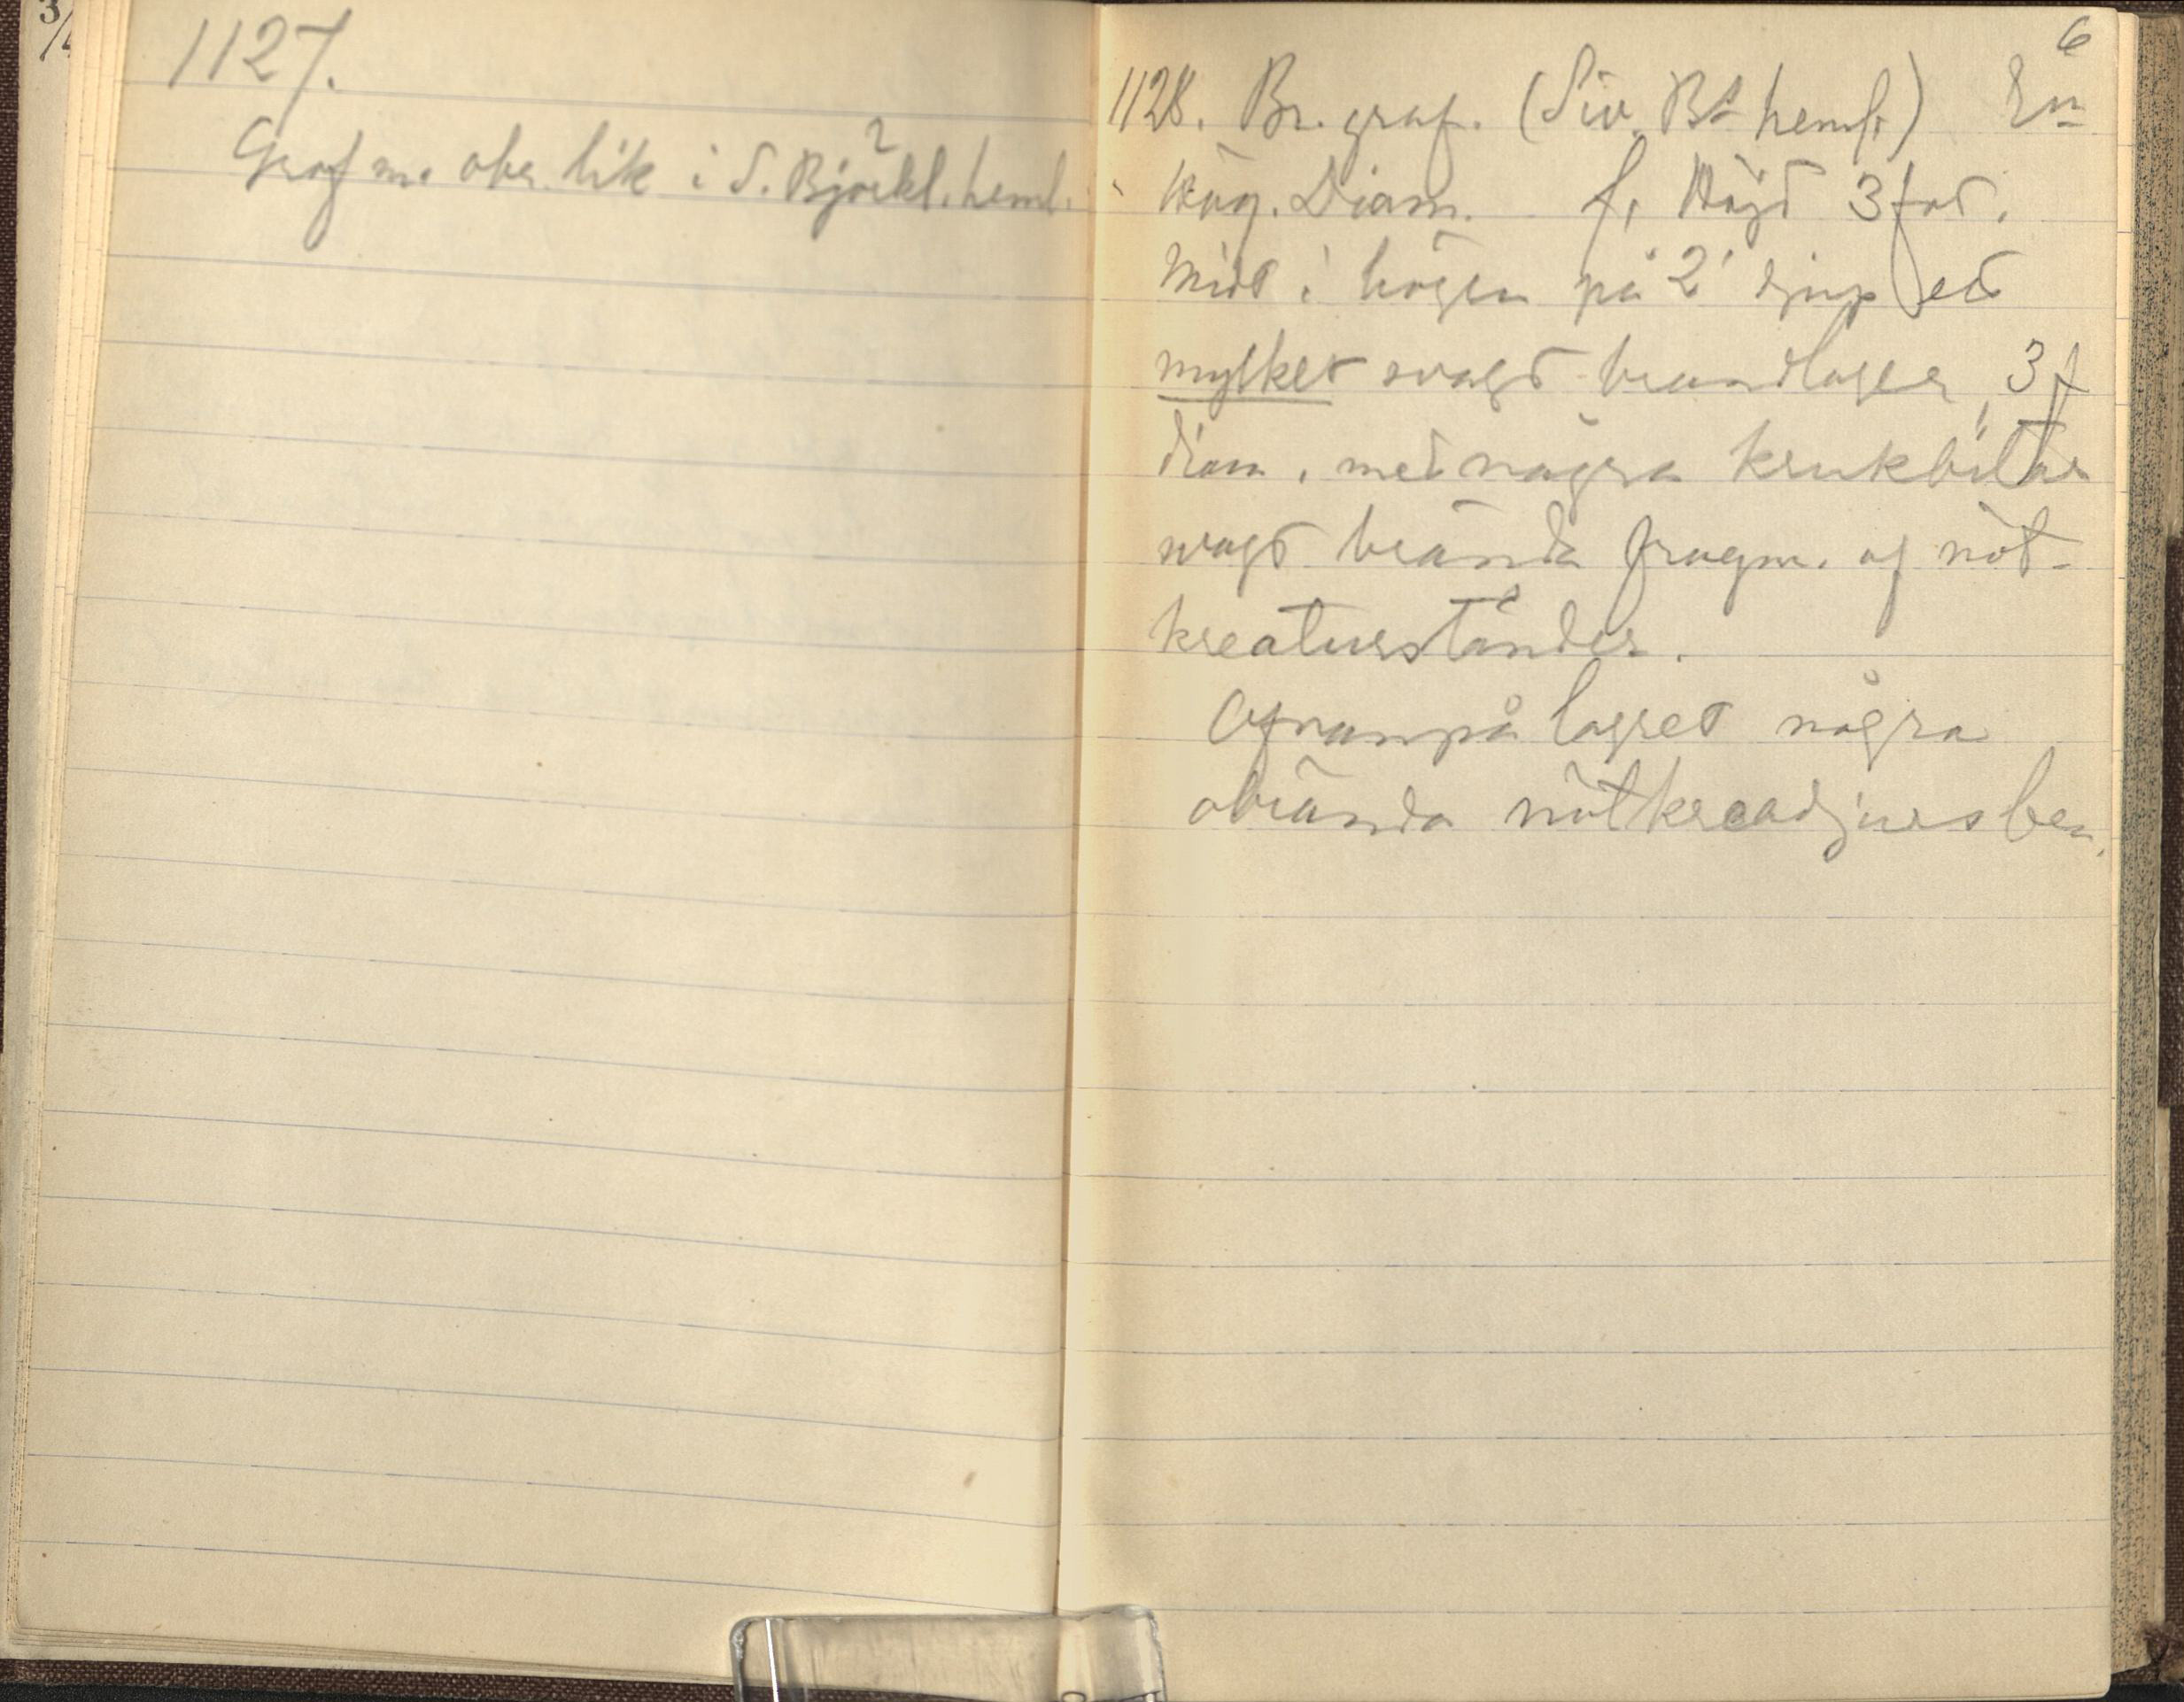 1127.
Graf m. obr. lik i S. Björkl. heml.
6
1128. Br. graf. (Siv. Bs heml.) En
Hög. Diam. f. Höjd 3 fot.
Midt i högen på 2' djup ett
mylket svagt brandlager, 3 f
diam. med några krukbitar
svagt brända fragm. af nöt-
kreaturständer.
Ofvanpå lagret några
obrända nötkreadjursben.